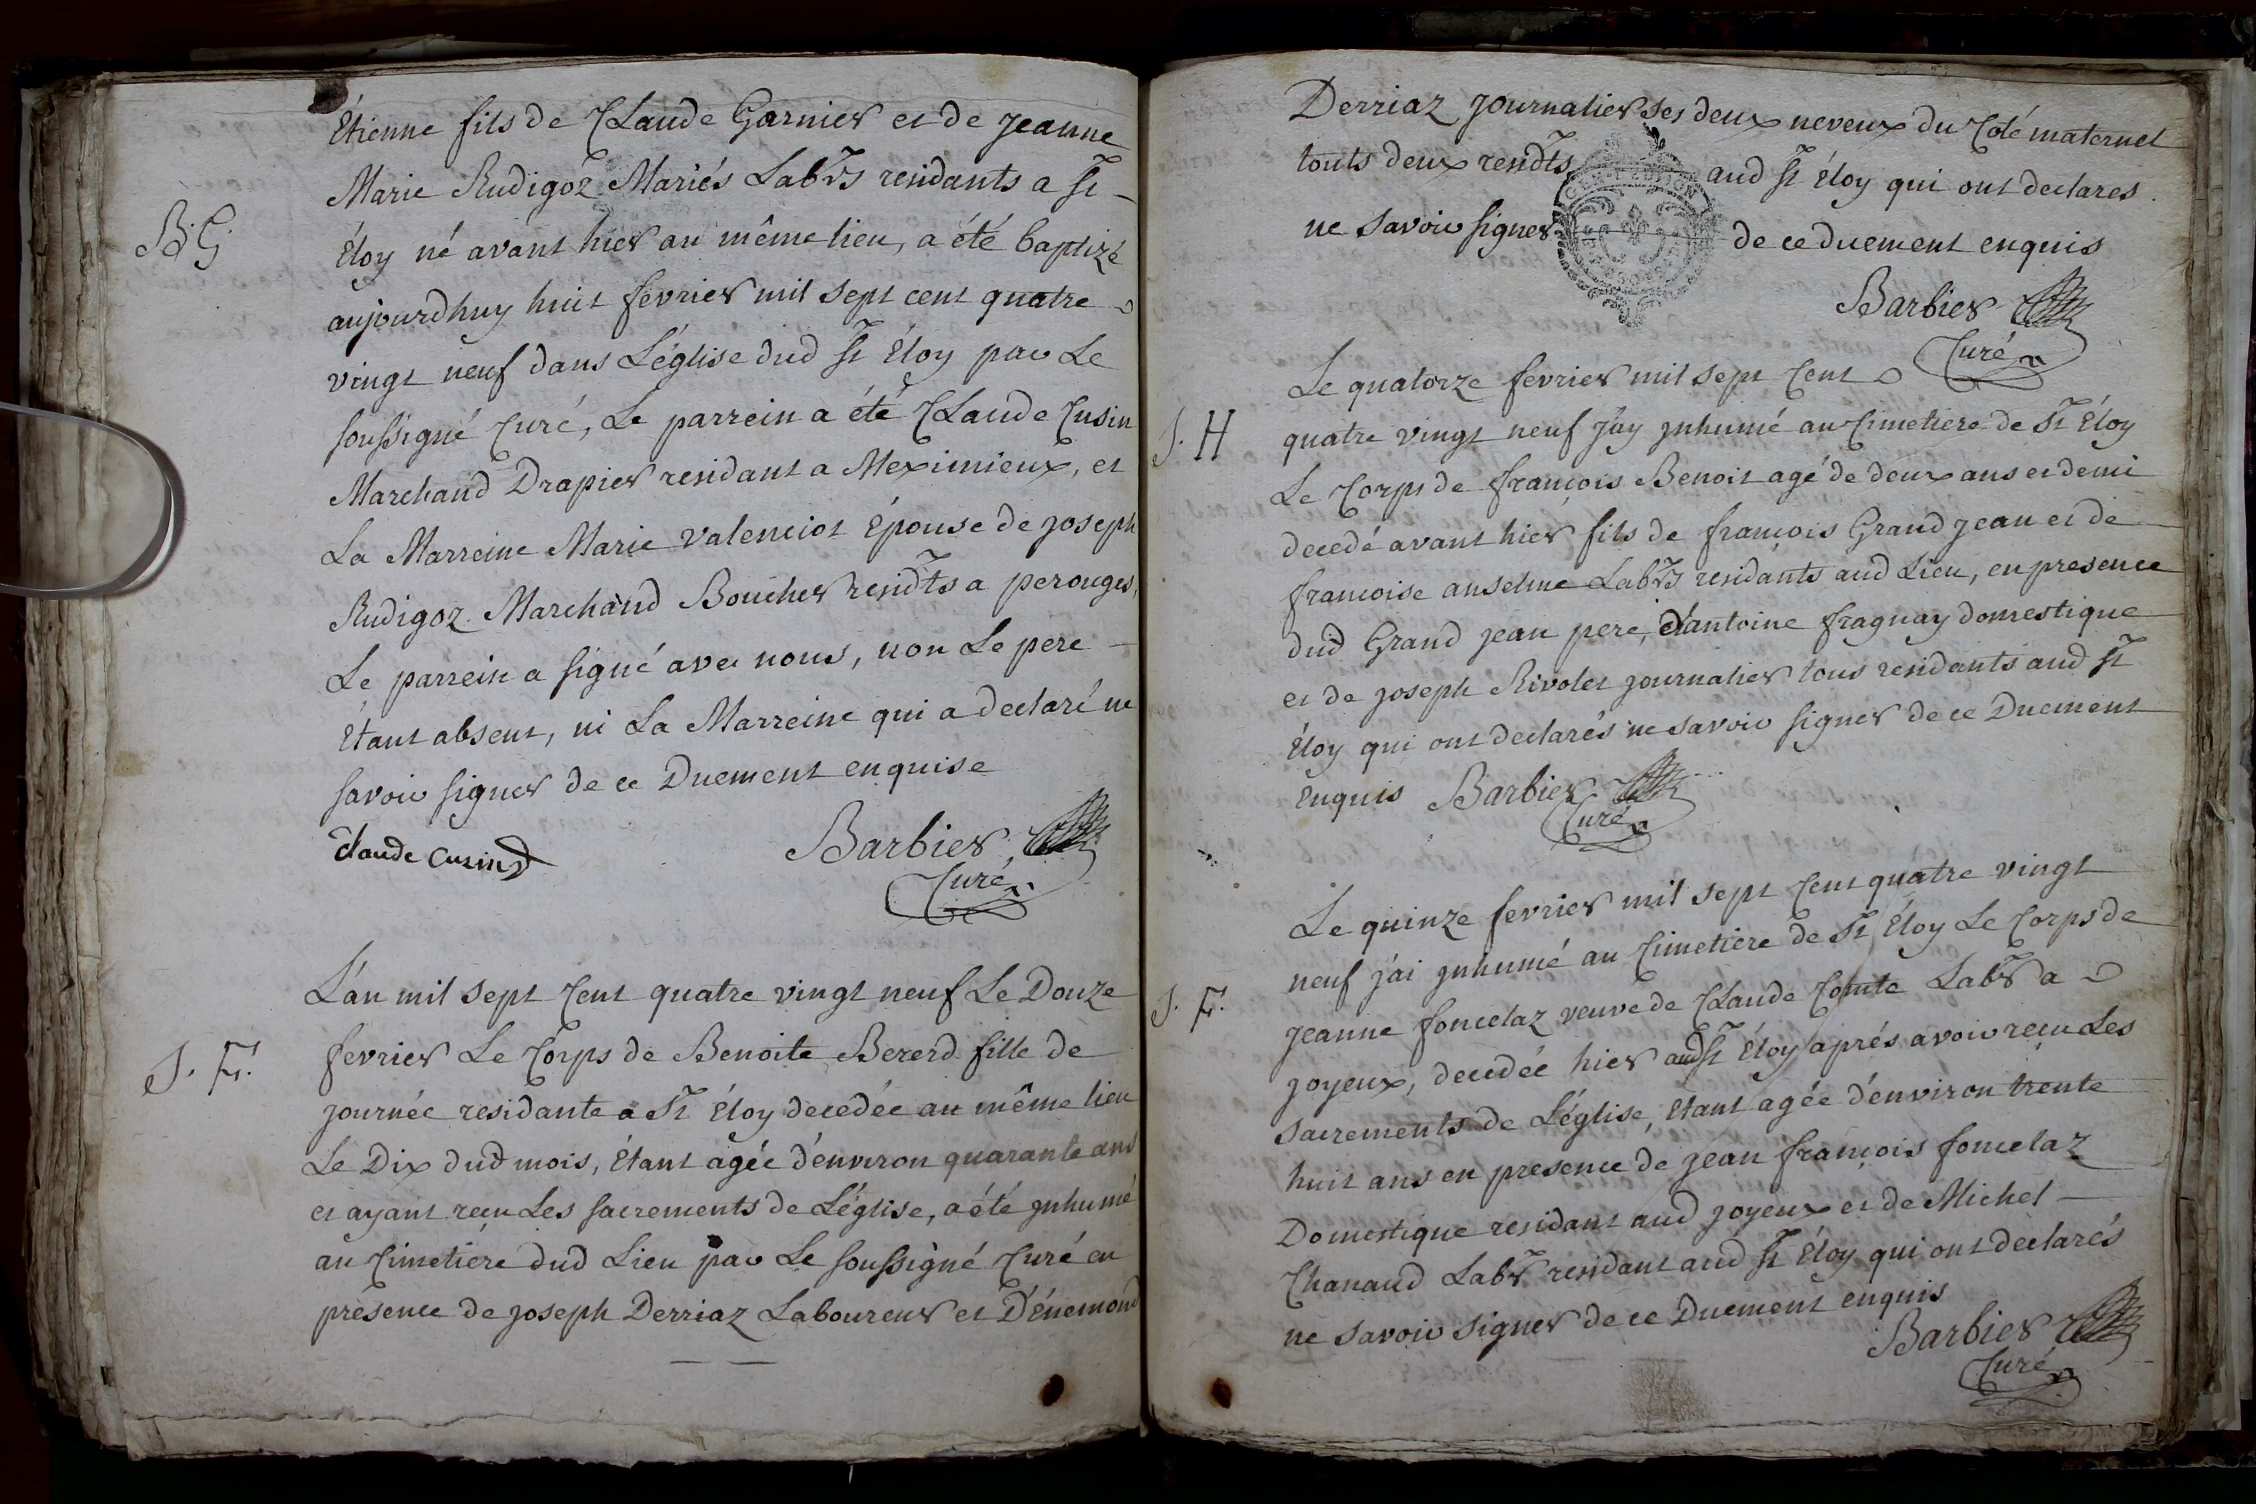 Étienne fils de Claude Garnier et de jeanne
Marie Rudigoz Mariés Labrs residants a St
B. G.
Éloy né avant hier au même lieu, a été baptizé
aujourdhuy huit fevrier mil sept cent quatre
vingt neuf dans L'église dud St Éloy par Le
soussigné Curé, Le parrein a été Claude Cusin
Marchand Drapier residant a Meximieux, et
La Marreine Marie valenciot Épouse de joseph
Rudigoz Marchand Boucher residts a perouges,
Le parrein a signé avec nous, non Le pere
Étant absent, ni La Marreine qui a declaré ne
savoir signer de ce Duement enquise
Claude Cusin
Barbier
Curé
L'an mil sept Cent quatre vingt neuf Le Douze
J. F.
fevrier Le Corps de Benoite Bererd fille de
journée residante a St Éloy decedée au même lieu
Le Dix dud mois, Étant agée d'environ quarante ans
et ayant recu Les sacrements de L'église, a été jnhumé
au Cimetière dud Lieu par Le soussigné Curé en
présence de joseph Derriaz Laboureur et D'Énemond
Derriaz journalier ses deux neveux du Coté maternel
touts deux residts aud St Éloy qui ont declarés
ne savoir signer de ce duement enquis
Barbier
Curé
Le quatorze fevrier mil sept Cent
J. H
quatre vingt neuf j'ay jnhumé au Cimetiere de St Éloy
Le Corps de françois Benoit agé de deux ans et demi
decedé avant hier fils de françois Grand jean et de
francoise anselme Labrs residants aud Lieu, en presence
dud Grand jean pere, d'antoine fragnay domestique
et de joseph Rivolet journalier tous residants aud St
Éloy qui ont declarés ne savoir signer de ce Duement
Enquis Barbier
Curé
Le quinze fevrier mil sept Cent quatre vingt
neuf j'ai jnhumé au Cimetiere de St Éloy Le Corps de
J. F.
jeanne foncelaz veuve de Claude Comte Labr a
joyeux, decedée hier aud St Éloy aprés avoir recu Les
sacrements de L'église, Étant agée d'environ trente
huit ans en presence de jean françois foncelaz
Domestique residant aud joyeux et de Michel
Chanaud Labr residant aud St Éloy qui ont declarés
ne savoir signer de ce Duement enquis
Barbier
Curé